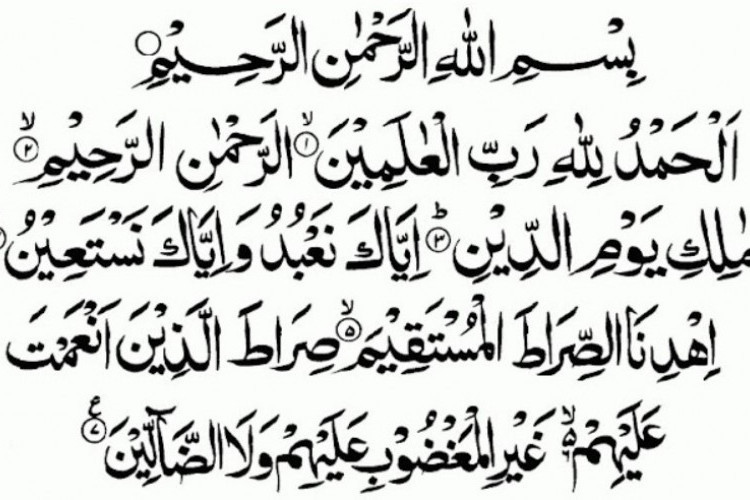 بِسْمِ اللهِ الرَّحْمٰنِ الرَّحِيْمِ
اَلْحَمْدُ لِلّٰهِ رَبِّ الْعٰلَمِيْنَ ۙ﴿۱﴾ الرَّحْمٰنِ الرَّحِيْمِ ۙ﴿۲﴾
مٰلِكِ يَوْمِ الدِّيْنِ ؕ﴿۳﴾ اِيَّاكَ نَعْبُدُ وَاِيَّاكَ نَسْتَعِيْنُ
اِهْدِنَا الصِّرَاطَ الْمُسْتَقِيْمَ ۙ﴿۵﴾ صِرَاطَ الَّذِيْنَ اَنْعَمْتَ
عَلَيْهِمْ ۙ۬ غَيْرِ الْمَغْضُوْبِ عَلَيْهِمْ وَلَا الضَّآلِّيْنَ ﴿۷﴾